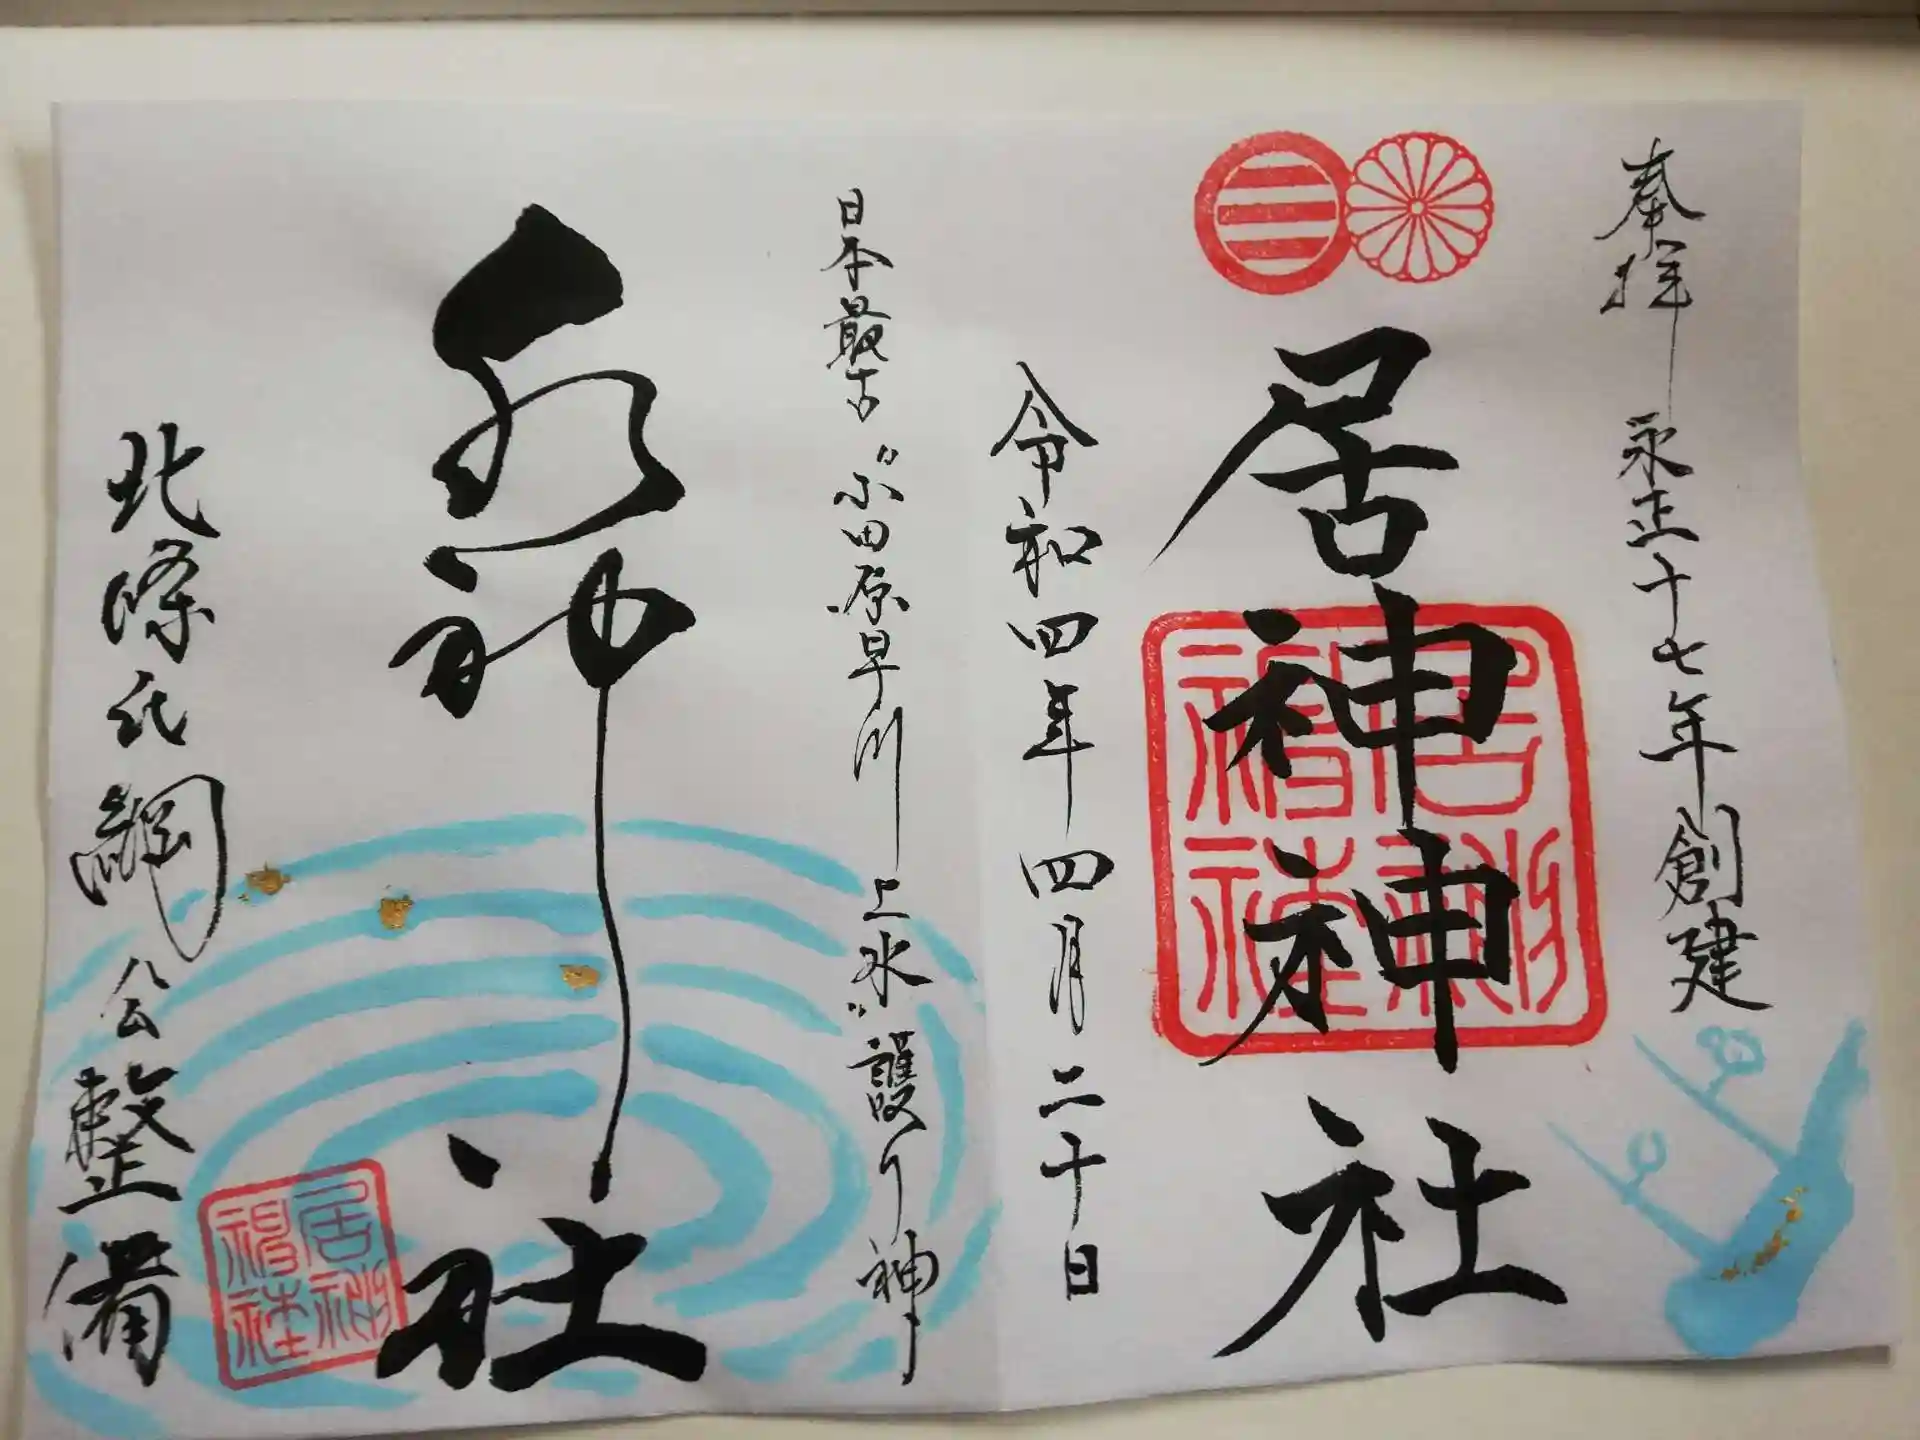 奉拝 永正十七年創建
居神神社
居神神社
令和四年四月二十日
日本最古"小田原早川上水"護り神
水神社
北條氏綱公整備
居神神社